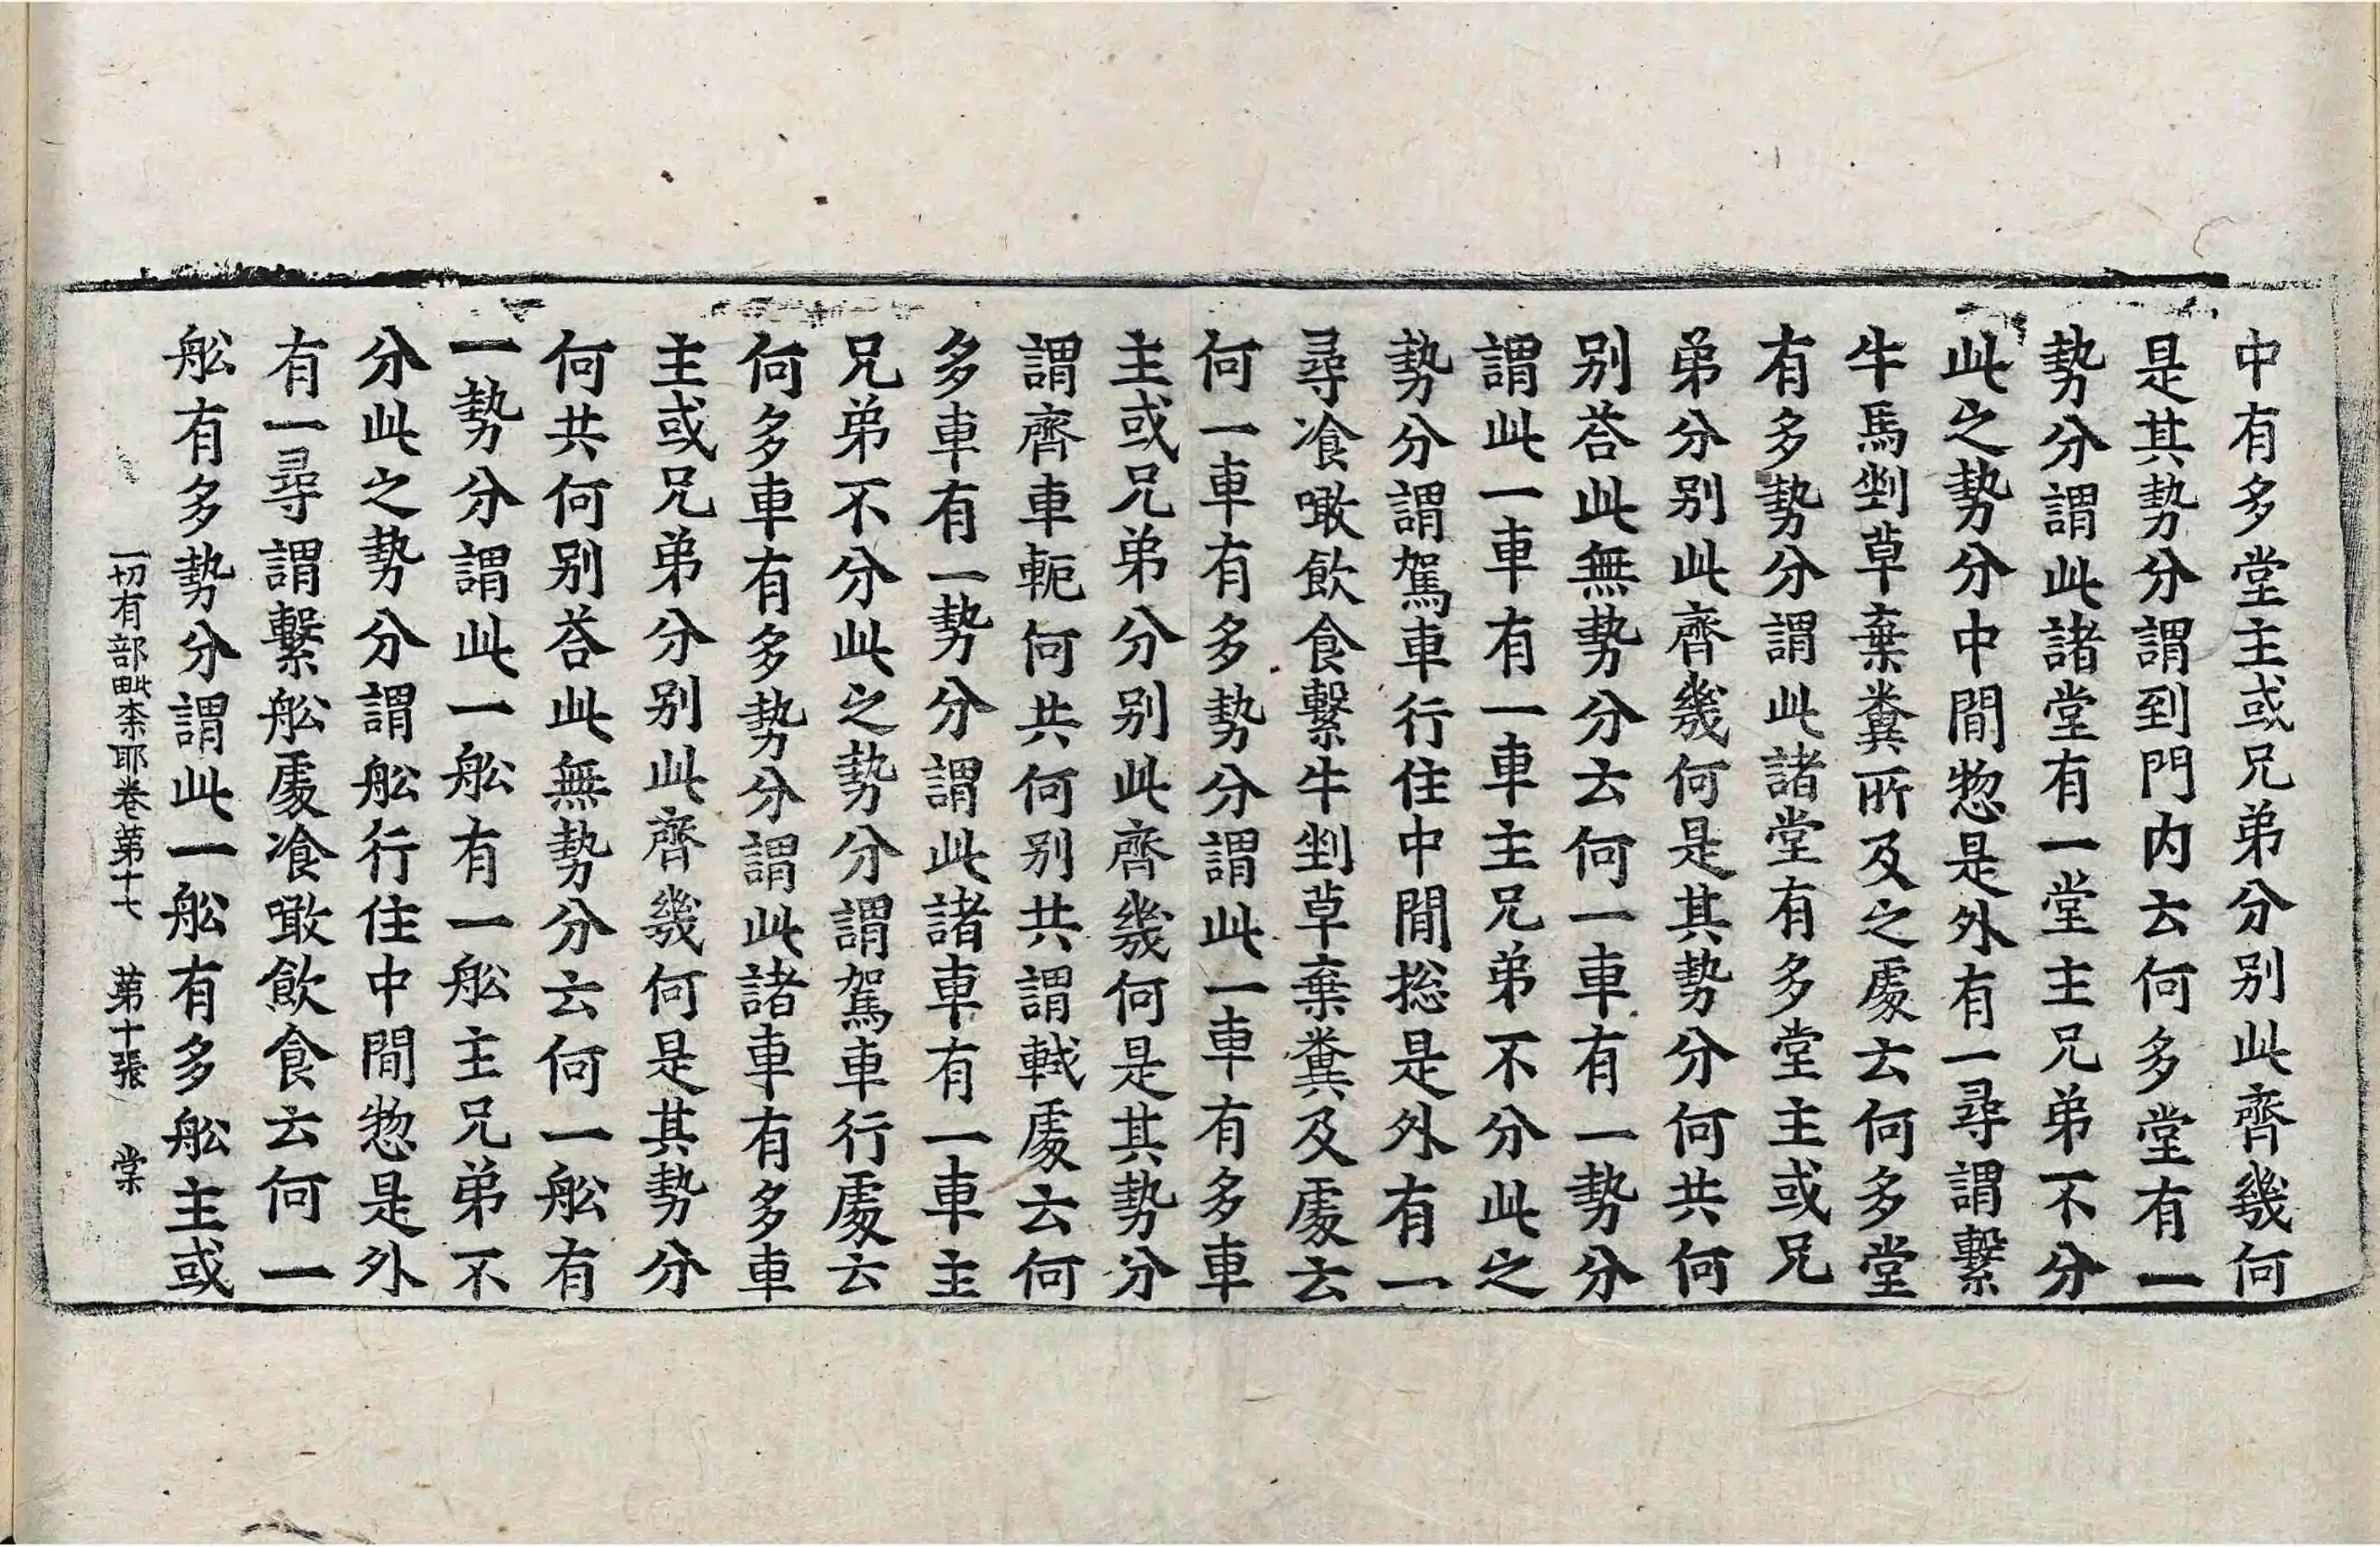 中有多堂主或兄弟分别此齊幾何
是其勢分謂到門内云何多堂有一
勢分謂此諸堂有一堂主兄弟不分
此之勢分中間惣是外有一尋謂繫
牛馬剉草棄糞所及之處云何多堂
有多勢分謂此諸堂有多堂主或兄
弟分别此齊幾何是其勢分何共何
别荅此無勢分云何一車有一勢分
謂此一車有一車主兄弟不分此之
勢分謂駕車行住中間揔是外有一
尋飡噉飲食繫牛剉草棄糞及處云
何一車有多勢分謂此一車有多車
主或兄弟分别此齊幾何是其勢分
謂齊車軛何共何别共謂軾處云何
多車有一勢分謂此諸車有一車主
兄弟不分此之勢分謂駕車行處云
何多車有多勢分謂此諸車有多車
主或兄弟分别此齊幾何是其勢分
何共何别荅此無勢分云何一舩有
一勢分謂此一舩有一舩主兄弟不
分此之勢分謂舩行住中間惣是外
有一尋謂繫舩處飡噉飲食云何一
舩有多勢分謂此一舩有多舩主或
一切有部毗柰耶卷第十七　第十張　棠